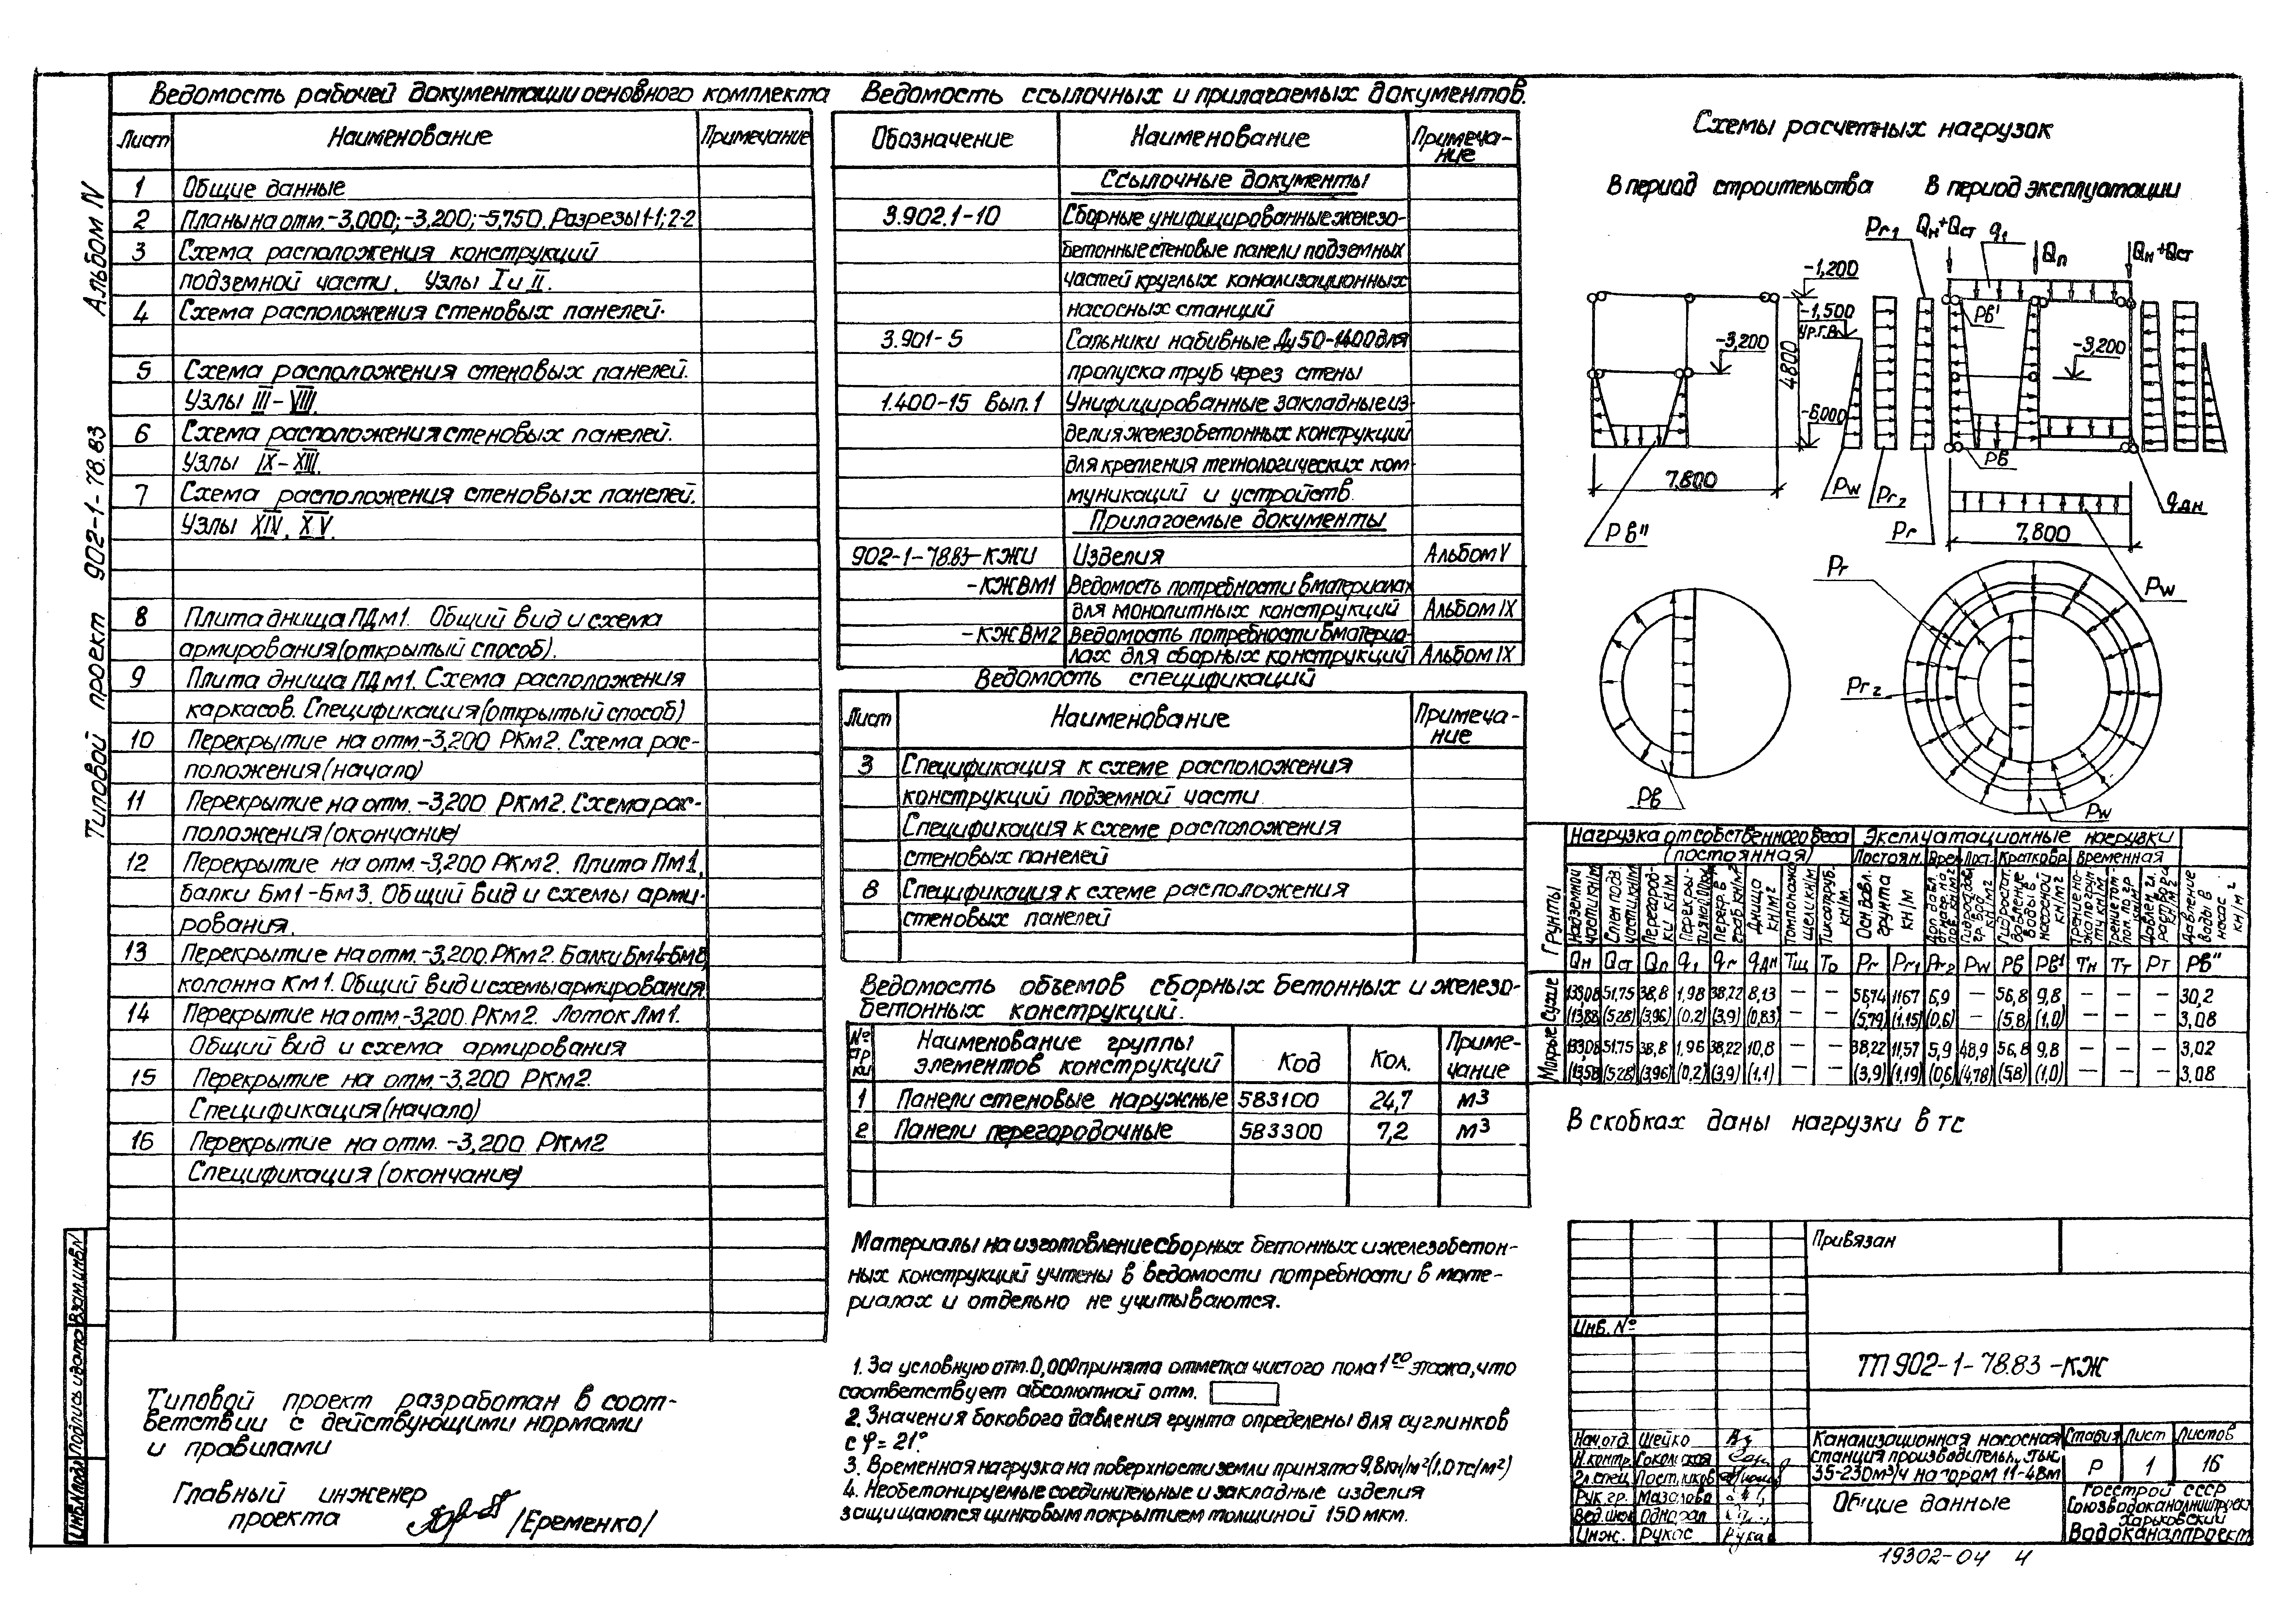 Альбом IV
Типовой проект 902-1-78.83
Ведомость рабочей документации основного комплекта
Лист Наименование Примечание
1 Общие данные
2 Планы на отм. -3,000; -3,200; -5,750. Разрезы 1-1; 2-2
3 Схема расположения конструкций
подземной части. Узлы I и II.
4 Схема расположения стеновых панелей.
5 Схема расположения стеновых панелей.
Узлы III-VIII.
6 Схема расположения стеновых панелей.
Узлы IX-XIII.
7 Схема расположения стеновых панелей.
Узлы XIV, XV.
8 Плита днища ПДм1. Общий вид и схема
армирования (открытый способ).
9 Плита днища ПДм1. Схема расположения
каркасов. Спецификация (открытый способ)
10 Перекрытие на отм. -3,200 РКм2. Схема рас-
положения (начало)
11 Перекрытие на отм. -3,200 РКм2. Схема рас-
положения (окончание)
12 Перекрытие на отм. -3,200 РКм2. Плита Пм1,
балки Бм1-Бм3. Общий вид и схемы арми-
рования.
13 Перекрытие на отм. -3,200. РКм2. Балки Бм4-Бм8,
колонна Км1. Общий вид и схемы армирования.
14 Перекрытие на отм. -3,200. РКм2. Лоток Лм1.
Общий вид и схема армирования
15 Перекрытие на отм. -3,200 РКм2.
Спецификация (начало)
16 Перекрытие на отм. -3,200 РКм2
Спецификация (окончание)
Типовой проект разработан в соот-
ветствии с действующими нормами
и правилами
Главный инженер
проекта /Еременко/
Инв.№подл. Подпись и дата Взам.инв.№
Ведомость ссылочных и прилагаемых документов.
Обозначение Наименование Примеча-
ние
Ссылочные документы
3.902.1-10 Сборные унифицированные железо-
бетонные стеновые панели подземных
частей круглых канализационных
насосных станций
3.901-5 Сальники набивные Ду 50-1400 для
пропуска труб через стены
1.400-15 вып.1 Унифицированные закладные из-
делия железобетонных конструкций
для крепления технологических ком-
муникаций и устройств.
Прилагаемые документы
902-1-78.83-КЖИ Изделия Альбом V
-КЖВМ1 Ведомость потребности в материалах
для монолитных конструкций Альбом IX
-КЖВМ2 Ведомость потребности в материа-
лах для сборных конструкций Альбом IX
Ведомость спецификаций
Лист Наименование Примеча-
ние
3 Спецификация к схеме расположения
конструкций подземной части
Спецификация к схеме расположения
стеновых панелей
8 Спецификация к схеме расположения
стеновых панелей
Ведомость объемов сборных бетонных и железо-
бетонных конструкций.
Наименование группы
элементов конструкций Код Кол. Приме-
чание
1 Панели стеновые наружные 583100 24,7 м3
2 Панели перегородочные 583300 7,2 м3
Материалы на изготовление сборных бетонных и железобетон-
ных конструкций учтены в ведомости потребности в мате-
риалах и отдельно не учитываются.
1. За условную отм. 0,000 принята отметка чистого пола 1го этажа, что
соответствует абсолютной отм.
2. Значения бокового давления грунта определены для суглинков
с φ = 21°.
3. Временная нагрузка на поверхности земли принята 9,8кн/м²(1,0тс/м²)
4. Необетонируемые соединительные и закладные изделия
защищаются цинковым покрытием толщиной 150 мкм.
Схемы расчетных нагрузок
В период строительства В период эксплуатации
Pг1 Qн+Qст q1 Qп Qн+Qст
-1,200
-1,500
Ур.г.в.
-3,200
4800
-6,000
7,800
Pв"
Pw Pг2 Pг
Pв'
-3,200
Pв
qдн
7,800
Pw
Pг
Pг2
Pв
Pw
Нагрузка от собственного веса
(постоянная)
Эксплуатационные нагрузки
Постоян. Врем. Пост. Кратковр. Временная
Грунты
Qн Qст Qп q1 qг qдн Тщ То Pг Pг1 Pг2 Pw Pв Pв1 Тн Тт Pт Pв"
Сухие 133,08 51,75 38,8 1,98 38,22 8,13 — — 56,74 11,67 5,9 — 56,8 9,8 — — — 30,2
(13,58) (5,28) (3,96) (0,2) (3,9) (0,83) — — (5,79) (1,15) (0,6) — (5,8) (1,0) — — — 3,08
Мокрые 133,08 51,75 38,8 1,96 38,22 10,8 — — 38,22 11,57 5,9 48,9 56,8 9,8 — — — 3,02
(13,58) (5,28) (3,96) (0,2) (3,9) (1,1) — — (3,9) (1,19) (0,6) (4,78) (5,8) (1,0) — — — 3,08
В скобках даны нагрузки в тс
Привязан
Инв. №
ТП 902-1-78.83 -КЖ
Нач.отд. Шейко
Н.контр. Сокольская
Гл.спец. Постников
Рук.гр. Мазалова
Вед.инж. Однорал
Инж. Рукас
Канализационная насосная
станция производительностью
35-230м³/ч напором 11-48м
Стадия Лист Листов
Р 1 16
Общие данные
Госстрой СССР
Союзводоканалниипроект
Харьковский
Водоканалпроект
19302-04 4